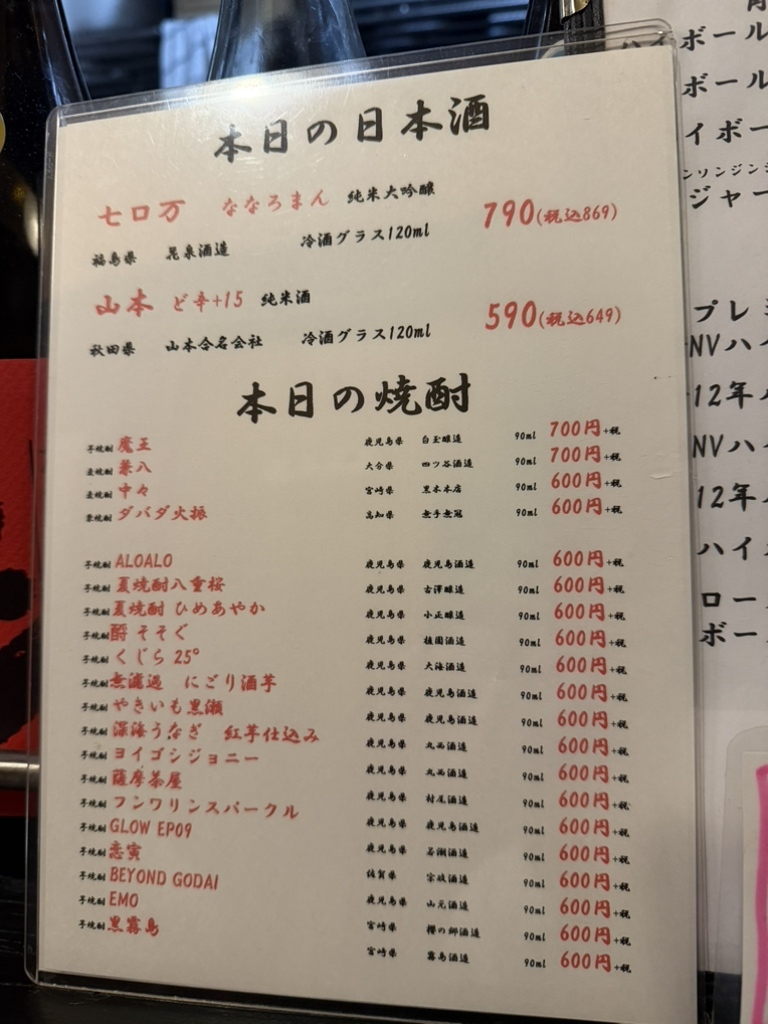 本日の日本酒
七ロ万 ななろまん 純米大吟醸 790(税込869)
福島県 花泉酒造 冷酒グラス120ml
山本 ど辛+15 純米酒 590(税込649)
秋田県 山本合名会社 冷酒グラス120ml
本日の焼酎
芋焼酎 魔王 鹿児島県 白玉醸造 90ml 700円+税
麦焼酎 兼八 大分県 四ツ谷酒造 90ml 700円+税
麦焼酎 中々 宮崎県 黒木本店 90ml 600円+税
栗焼酎 ダバダ火振 高知県 無手無冠 90ml 600円+税
芋焼酎 ALOALO 鹿児島県 鹿児島酒造 90ml 600円+税
芋焼酎 夏焼酎八重桜 鹿児島県 古澤醸造 90ml 600円+税
芋焼酎 夏焼酎 ひめあやか 鹿児島県 小正醸造 90ml 600円+税
芋焼酎 酹 そそぐ 鹿児島県 植園酒造 90ml 600円+税
芋焼酎 くじら 25° 鹿児島県 大海酒造 90ml 600円+税
芋焼酎 無濾過 にごり酒芋 鹿児島県 鹿児島酒造 90ml 600円+税
芋焼酎 やきいも黒瀬 鹿児島県 鹿児島酒造 90ml 600円+税
芋焼酎 深海うなぎ 紅芋仕込み 鹿児島県 丸西酒造 90ml 600円+税
芋焼酎 ヨイゴシジョニー 鹿児島県 丸西酒造 90ml 600円+税
芋焼酎 薩摩茶屋 鹿児島県 村尾酒造 90ml 600円+税
芋焼酎 フンワリンスパークル 鹿児島県 鹿児島酒造 90ml 600円+税
芋焼酎 GLOW EP09 鹿児島県 若潮酒造 90ml 600円+税
芋焼酎 恋寅 佐賀県 宗政酒造 90ml 600円+税
芋焼酎 BEYOND GODAI 鹿児島県 山元酒造 90ml 600円+税
芋焼酎 EMO 宮崎県 櫻の郷酒造 90ml 600円+税
芋焼酎 黒霧島 宮崎県 霧島酒造 90ml 600円+税
ハイボール
ボール
イボー
ンソンジン
ジャー
プレミ
NVハイ
12年ハ
NVハ
12年
ハイ
ロー
ボー